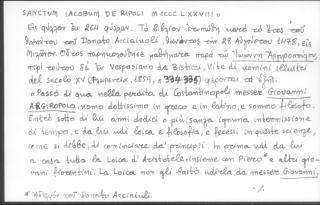 SANCTUM IACOBUM DE RIPOLI M CCCC LXXVIII »
Εἰς φύλλων 264 φύλλων. Τὸ βιβλίον ἐτυπώθη μετὰ τὸ ἔτος τοῦ
θανάτου τοῦ Donato Acciaiuoli, θανόντος τὴν 28 Αὐγούστου 1478, εἰς
Μιλάνον. Οὗτος παρηκολούθησε μαθήματα παρὰ τοῦ Ἰωάννου Ἀργυροπούλου,
περὶ τούτου δὲ ἐν Vespasiano da Bisticci, Vite di uomini illustri
del secolo XV (Φλωρεντία, 1859, σ. 334-335) φέρονται τὰ ἑξῆς:
« Passò di qua nella perdita di Costantinopoli messer Giovanni
ARGIROPOLO, uomo dottissimo in greco e in latino, e sommo filosofo.
Entrò sotto di lui anni dodici o più, sanza ignuna intermissione
di tempo, e da lui udì loica e filosofia, e fecesi in queste scienze,
come si debbe, di cominciare da' principii. In prima udì da lui
a casa tutta la Loica d'Aristotele, insieme con Piero* e altri gio-
vani fiorentini. La Loica non gli bastò udirla da messer Giovanni,
* Ἀδελφὸν τοῦ Donato Acciaiuoli.
./.